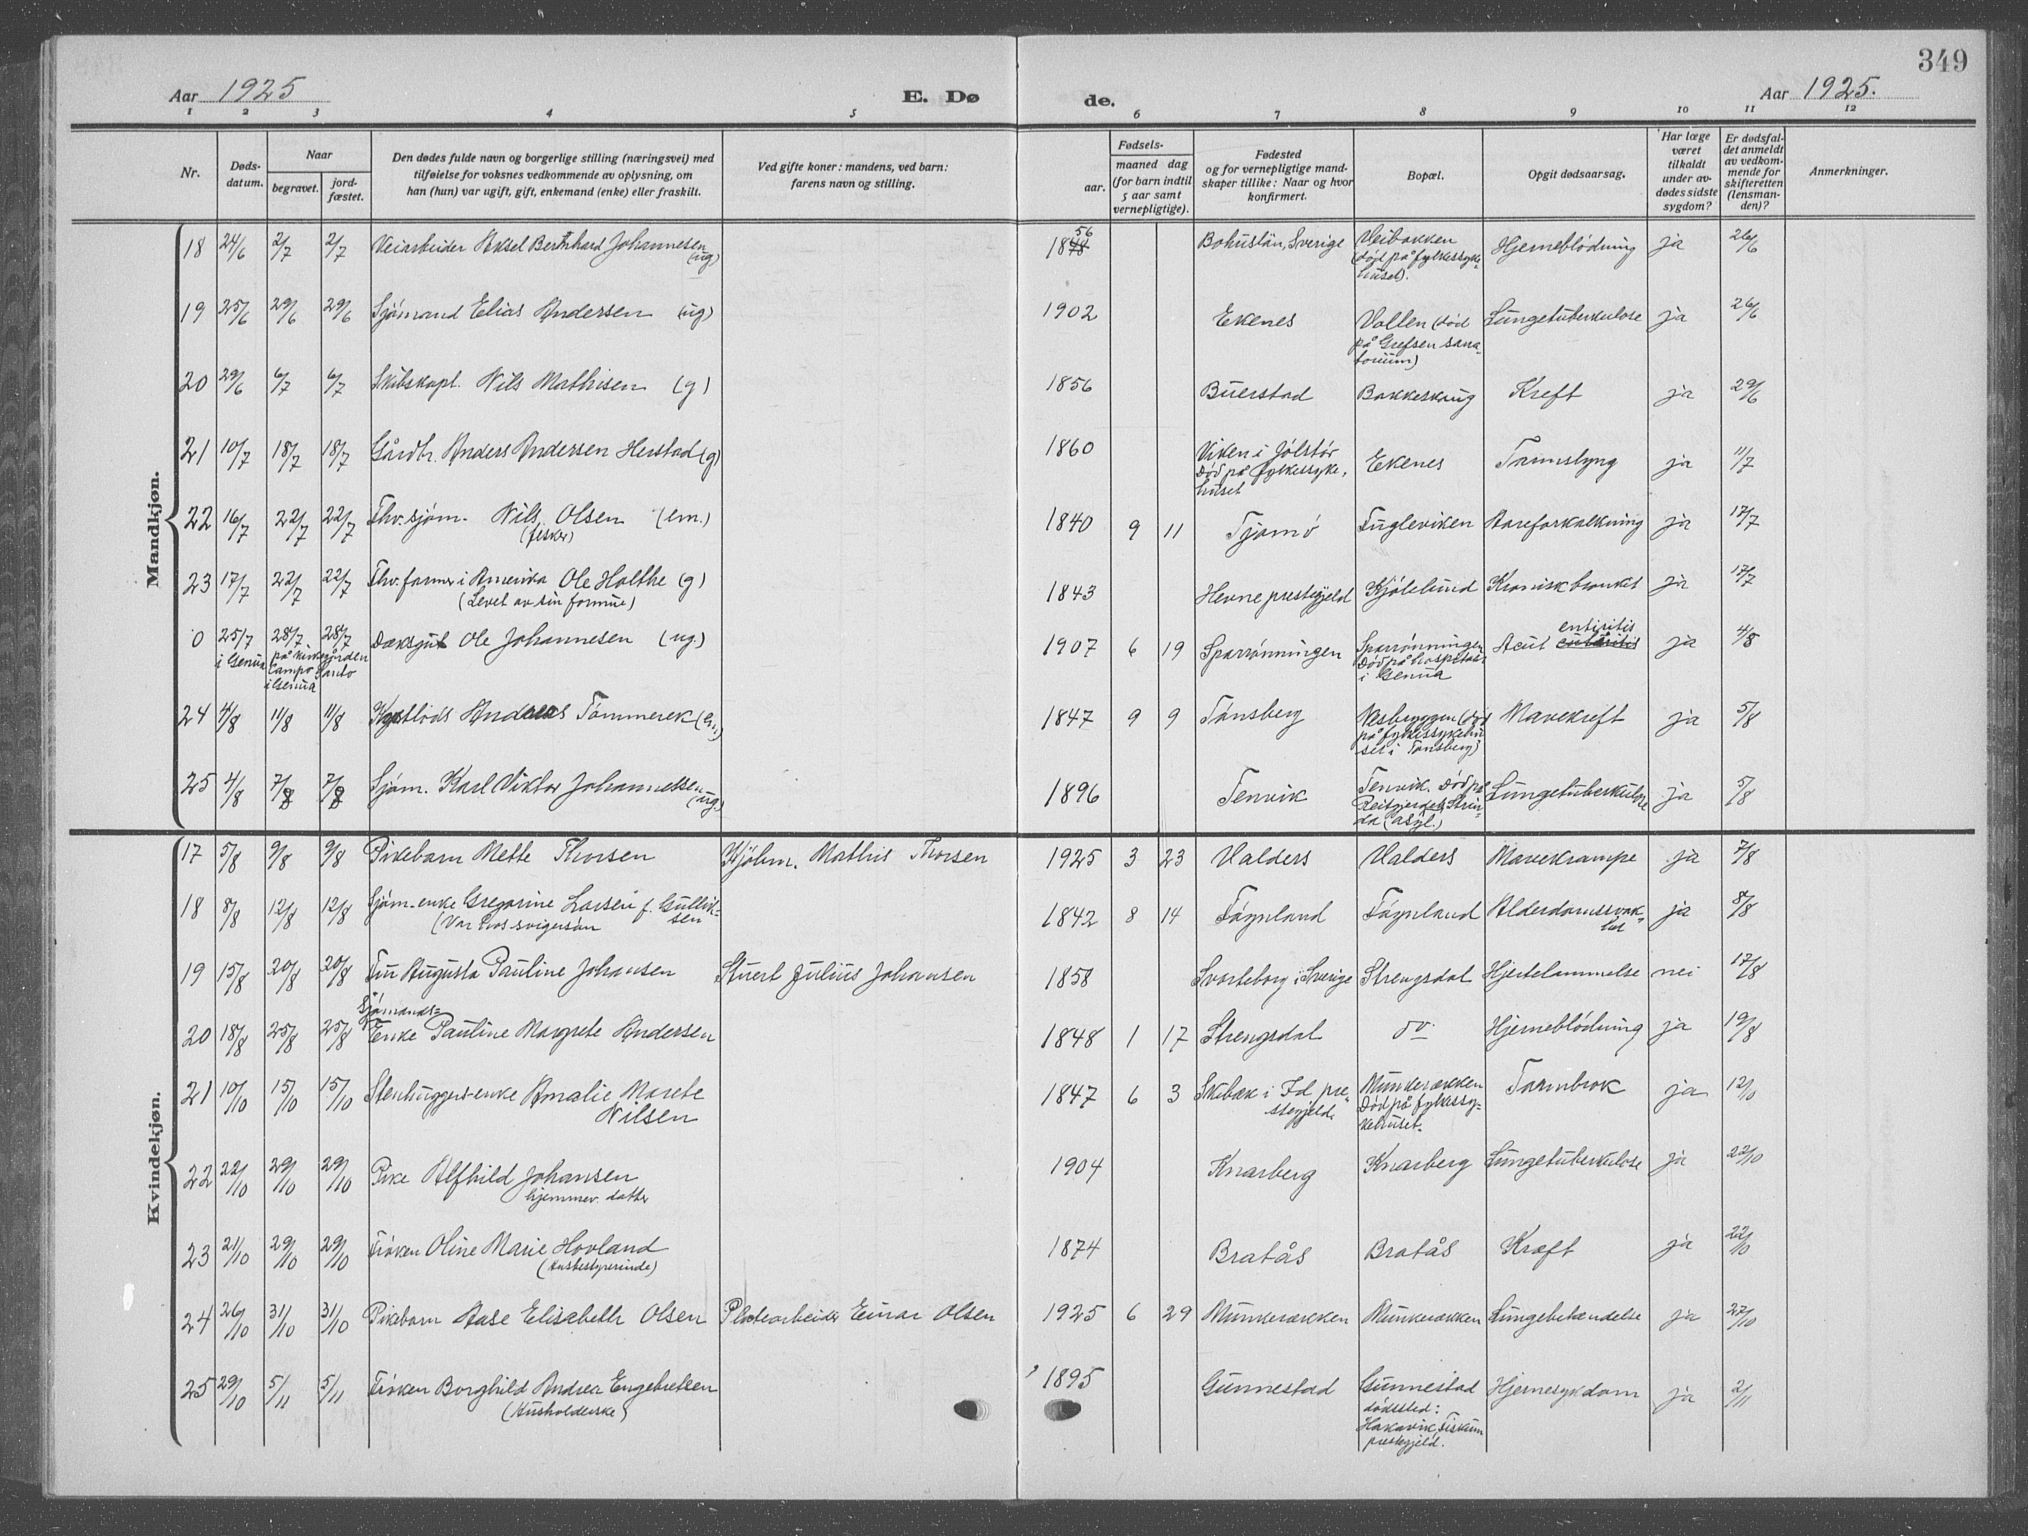 349
Aar 1925 E. Dø de. Aar 1925.
1 2 3 4 5 6 7 8 9 10 11 12
Nr. Døds-datum. Naar begravet. jord-fæstet. Den dødes fulde navn og borgerlige stilling (næringsvei) med tilføielse for voksnes vedkommende av oplysning, om han (hun) var ugift, gift, enkemand (enke) eller fraskilt. Ved gifte koner: mandens, ved barn: farens navn og stilling. Fødsels- aar. maaned dag (for barn indtil 5 aar samt vernepligtige). Fødested og for vernepligtige mand-skaper tillike: Naar og hvor konfirmert. Bopæl. Opgit dødsaarsag. Har læge været tilkaldt under av-dødes sidste sygdom? Er dødsfal-det anmeldt av vedkom-mende for skifteretten (lensman-den)? Anmerkninger.
Mandkjøn.
18 24/6 2/7 2/7 Veiarbeider Aksel Bernhard Johannesen (ug) 1848 56 Bohuslän, Sverige Veibakken (død på fylkessyke-huset). Hjerneblødning ja 26/6
19 25/6 29/6 29/6 Sjømand Elias Andersen (ug) 1902 Ekenes Vollen (død på Grefsen sana-torium) Lungetuberkulose ja 26/6
20 29/6 6/7 6/7 Skibskapt. Nils Mathisen (g) 1856 Buerstad Bakkeskaug Kreft ja 29/6
21 10/7 18/7 18/7 Gårdbr. Anders Andersen Herstad (g) 1860 Viken i Jølster Død på fylkessyke-huset Ekenes Tarmslyng ja 11/7
22 16/7 22/7 22/7 Fhv. sjøm. Nils Olsen (em.) (fisker) 1840 9 11 Tjømø Fugleviken Aareforkalkning ja 17/7
23 17/7 22/7 22/7 Fhv. farmer i Amerika Ole Holthe (g) (Levet av sin formue) 1843 Hevne prestegjeld Kjølelund Kronisk bronkit ja 17/7
0 25/7 i Genua 28/7 28/7 på kirkegården Campo Santo i Genua Dæksgut Ole Johannesen (ug.) 1907 6 19 Sparrønningen Sparrønningen Død på hospital i Genua Acut entiritis ja 4/8
24 4/8 11/8 11/8 Kystlods Andreas Tømmerek (em.) 1847 9 9 Tønsberg Næsbryggen (død på fylkessykehu-set i Tønsberg) Mavekreft ja 5/8
25 4/8 7/8 7/8 Sjøm. Karl Viktor Johannessen (ug) 1896 Tenvik Tenvik. Død på Reitgjerdet, Strin-da (asyl.) Lungetuberkulose ja 5/8
Kvindekjøn.
17 5/8 9/8 9/8 Pikebarn Mette Thorsen Kjøbm. Mathis Thorsen 1925 3 23 Valders Valders Mavekrampe ja 7/8
18 8/8 12/8 12/8 Sjøm-enke Gregorine Larsen f. Gullik-sen (Var hos svigersøn 1842 8 14 Føynland Føynland Alderdomssvak-het ja 8/8
19 15/8 20/8 20/8 Fru Augusta Pauline Johansen Stuert Julius Johansen 1858 Svarteborg i Sverige Strengsdal Hjertelammelse nei 17/8
20 18/8 25/8 25/8 Sjømands-Enke Pauline Margrete Andersen 1848 1 17 Strengsdal do Hjerneblødning ja 19/8
21 10/10 15/10 15/10 Stenhuggers-enke Amalie Marete Nilsen 1847 6 3 Skibæk i Id pre-stegjeld. Munkerækken Død på fylkessy-kehuset. Tarmbrok ja 12/10
22 22/10 29/10 29/10 Pike Alfhild Johansen hjemmev. datter 1904 Knarberg Knarberg Lungetuberkulose ja 22/10
23 21/10 29/10 29/10 Frøken Oline Marie Hovland (Husbestyrerinde) 1874 Bratås Bratås Kræft ja 22/10
24 26/10 31/10 31/10 Pikebarn Aase Elisabeth Olsen Platearbeider Einar Olsen 1925 6 29 Munkerækken Munkerækken Lungebetændelse ja 27/10
25 29/10 5/11 5/11 Frøken Borghild Andrea Engebretsen (Husholderske) 1895 Gunnestad Gunnestad dødssted: Hakavik, Fiskum prestegjeld. Hjernesykdom ja 2/11